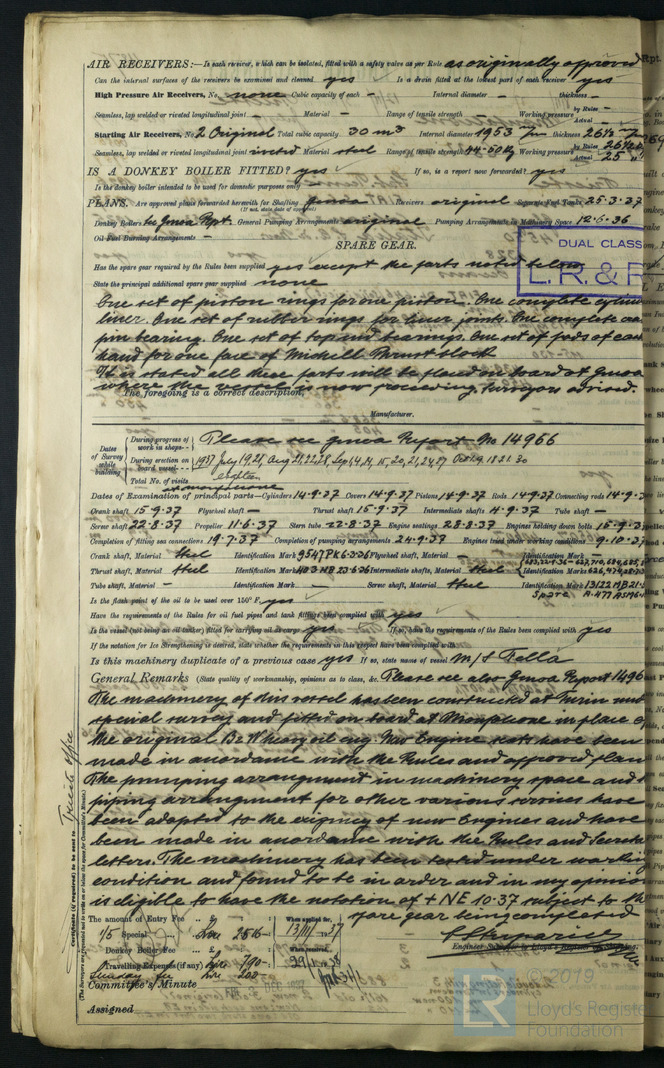 AIR RECEIVERS:—Is each receiver, which can be isolated, fitted with a safety valve as per Rule as originally approved
Can the internal surfaces of the receivers be examined and cleaned yes Is a drain fitted at the lowest part of each receiver yes
High Pressure Air Receivers, No. none Cubic capacity of each - Internal diameter - thickness -
Seamless, lap welded or riveted longitudinal joint - Material - Range of tensile strength - Working pressure by Rules - Actual -
Starting Air Receivers, No. 2 Original Total cubic capacity 30 m3 Internal diameter 1953 m/m thickness 26½ m/m
Seamless, lap welded or riveted longitudinal joint riveted Material steel Range of tensile strength 44-50 Kg Working pressure by Rules Actual 25 "
IS A DONKEY BOILER FITTED? yes If so, is a report now forwarded? yes
Is the donkey boiler intended to be used for domestic purposes only -
PLANS. Are approved plans forwarded herewith for Shafting Genoa Receivers original Separate Fuel Tanks 25-3-37
(If not, state date of approval)
Donkey Boilers see Genoa Rept. General Pumping Arrangements original Pumping Arrangements in Machinery Space 12-6-36
Oil Fuel Burning Arrangements -
SPARE GEAR.
DUAL CLASS
L.R. & R
Has the spare gear required by the Rules been supplied yes except the parts noted below
State the principal additional spare gear supplied none
One set of piston rings for one piston. One complete cylin
liner. One set of rubber rings for liner joints. One complete
pin bearing. One set of top end bearings. One set of pads of each
hand for one face of Michell Thrust block
It is stated all these parts will be placed on board at Genoa
where the vessel is now proceeding, surveyors advised.
The foregoing is a correct description,
Manufacturer.
Dates of Survey while building
During progress of work in shops - - Please see Genoa Report No 14966
During erection on board vessel - - - 1937 July 19, 21, Aug 21, 22, 28, Sep 1, 4, 14, 15, 20, 21, 24, 27 Oct 1, 9, 18, 21, 30
Total No. of visits eighteen at monfalcone
Dates of Examination of principal parts—Cylinders 14-9-37 Covers 14-9-37 Pistons 14-9-37 Rods 14-9-37 Connecting rods 14-9-3
Crank shaft 15-9-37 Flywheel shaft - Thrust shaft 15-9-37 Intermediate shafts 4-9-37 Tube shaft -
Screw shaft 22-8-37 Propeller 11-6-37 Stern tube 22-8-37 Engine seatings 28-8-37 Engines holding down bolts 15-9-3
Completion of fitting sea connections 19-7-37 Completion of pumping arrangements 24-9-37 Engines tried under working conditions 9-10-37
Crank shaft, Material steel Identification Mark 9547 PK 6-3-36 Flywheel shaft, Material - Identification Mark -
Thrust shaft, Material steel Identification Mark Intermediate shafts, Material steel Identification Marks
Tube shaft, Material - Identification Mark - Screw shaft, Material steel Identification Mark 13122 MB 21-
Spare A-477 ASM
Is the flash point of the oil to be used over 150° F. yes
Have the requirements of the Rules for oil fuel pipes and tank fittings been complied with yes
Is the vessel (not being an oil tanker) fitted for carrying oil as cargo yes If so, have the requirements of the Rules been complied with yes
If the notation for Ice Strengthening is desired, state whether the requirements in this respect have been complied with
Is this machinery duplicate of a previous case yes If so, state name of vessel M/S Fella
General Remarks (State quality of workmanship, opinions as to class, &c. Please see also Genoa Report 1496
The machinery of this vessel has been constructed at Turin under
special survey and fitted on board at Monfalcone in place of
the original B & W heavy oil eng. New Engine seats have been
made in accordance with the Rules and approved plan
The pumping arrangment in machinery space and
piping arrangment for other various services have
been adapted to the exigency of new Engines and have
been made in accordance with the Rules and Secretary
letters. The machinery has been tested under working
condition and found to be in order and in my opinion
is eligible to have the notation of + NE 10-37 subject to the
spare gear being completed
Certificate (if required) to be sent to Trieste Office
(The Surveyors are requested not to write on or below the space for Committee's Minute.)
The amount of Entry Fee .. £ : : When applied for,
1/5 Special ... Lire 2516- 13/11/1937
Donkey Boiler Fee ... £ : : When received,
Travelling Expenses (if any) Lire 790- 29/1/1938
Sunday fee Lire 200-
Engineer Surveyor to Lloyd's Register of Shipping.
Committee's Minute
Assigned
© 2019
Lloyd's Register
Foundation